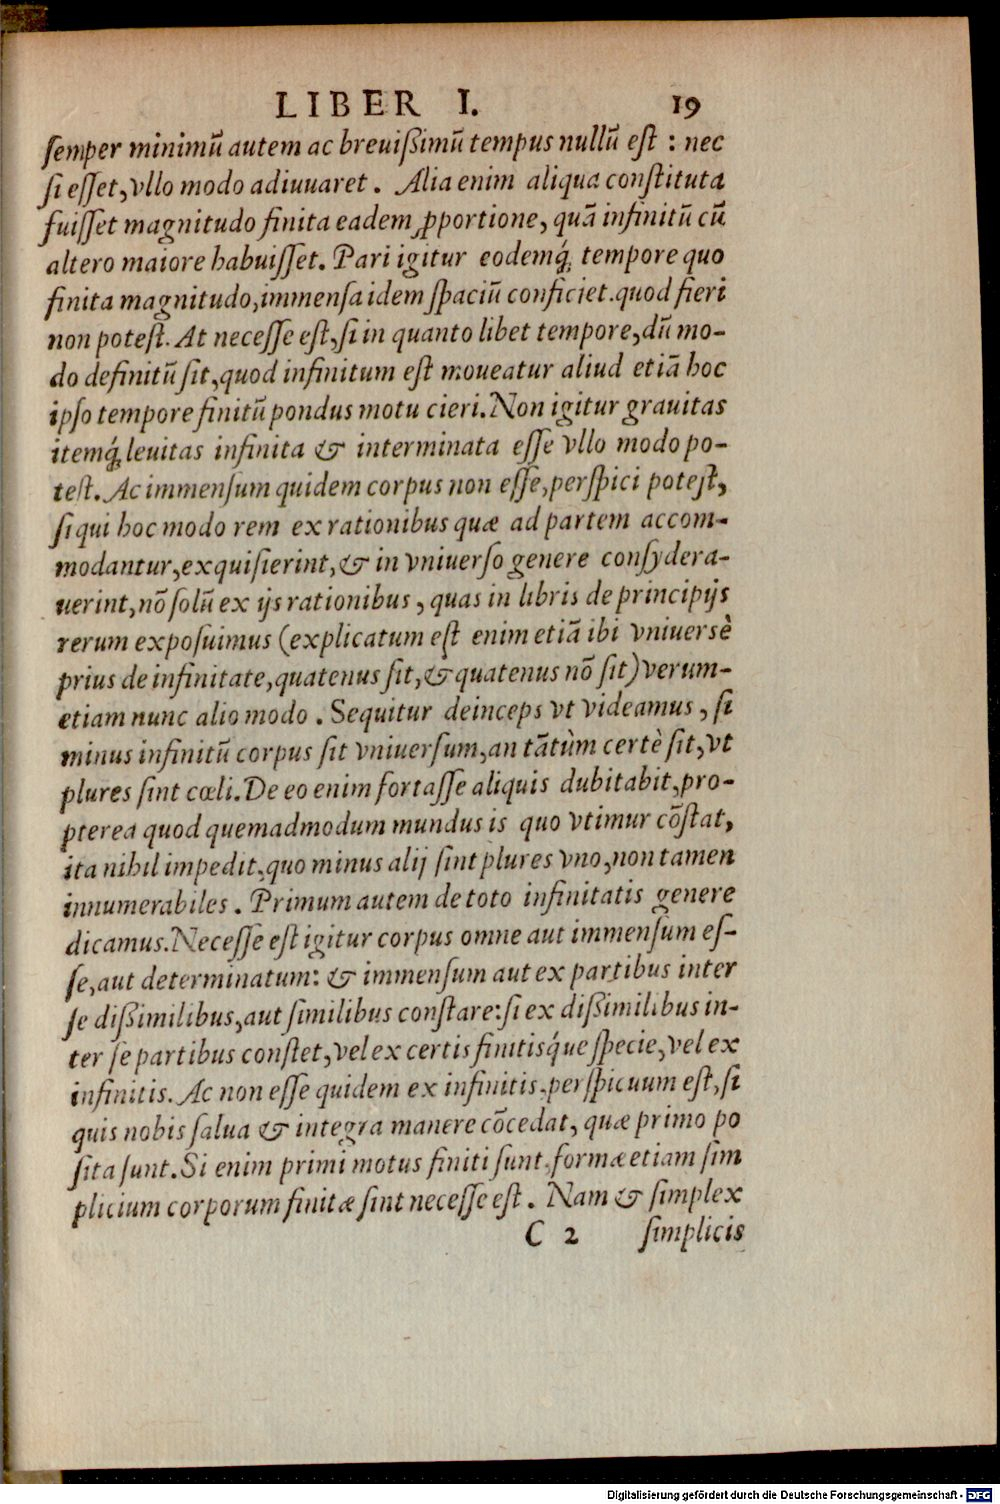 LIBER I. 19
ſemper minimũ autem ac breuiſsimũ tempus nullũ eſt : nec
ſi eſſet, vllo modo adiuuaret. Alia enim aliqua conſtituta
fuiſſet magnitudo finita eadem ꝓportione, quã infinitũ cũ
altero maiore habuiſſet. Pari igitur eodemq́; tempore quo
finita magnitudo, immenſa idem ſpaciũ conficiet. quod fieri
non poteſt. At neceſſe eſt, ſi in quanto libet tempore, dũ mo-
do definitũ ſit, quod infinitum eſt moueatur aliud etiã hoc
ipſo tempore finitũ pondus motu cieri. Non igitur grauitas
itemq́; leuitas infinita & interminata eſſe vllo modo po-
teſt. Ac immenſum quidem corpus non eſſe, perſpici poteſt,
ſi qui hoc modo rem ex rationibus quæ ad partem accom-
modantur, exquiſierint, & in vniuerſo genere conſydera-
uerint, nõ ſolũ ex ijs rationibus, quas in libris de principijs
rerum expoſuimus (explicatum eſt enim etiã ibi vniuersè
prius de infinitate, quatenus ſit, & quatenus nõ ſit) verum-
etiam nunc alio modo. Sequitur deinceps vt videamus, ſi
minus infinitũ corpus ſit vniuerſum, an tãtùm certè ſit, vt
plures ſint cœli. De eo enim fortaſſe aliquis dubitabit, pro-
pterea quod quemadmodum mundus is quo vtimur cõſtat,
ita nihil impedit, quo minus alij ſint plures vno, non tamen
innumerabiles. Primum autem de toto infinitatis genere
dicamus. Neceſſe eſt igitur corpus omne aut immenſum eſ-
ſe, aut determinatum: & immenſum aut ex partibus inter
ſe diſsimilibus, aut ſimilibus conſtare: ſi ex diſsimilibus in-
ter ſe partibus conſtet, vel ex certis finitisq́ue ſpecie, vel ex
infinitis. Ac non eſſe quidem ex infinitis, perſpicuum eſt, ſi
quis nobis ſalua & integra manere cõcedat, quæ primo po
ſita ſunt. Si enim primi motus finiti ſunt, formæ etiam ſim
plicium corporum finitæ ſint neceſſe eſt. Nam & ſimplex
C 2 ſimplicis
Digitalisierung gefördert durch die Deutsche Forschungsgemeinschaft - DFG